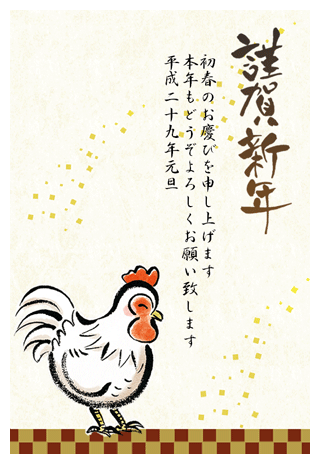 謹賀新年
初春のお慶びを申し上げます
本年もどうぞよろしくお願い致します
平成二十九年元旦